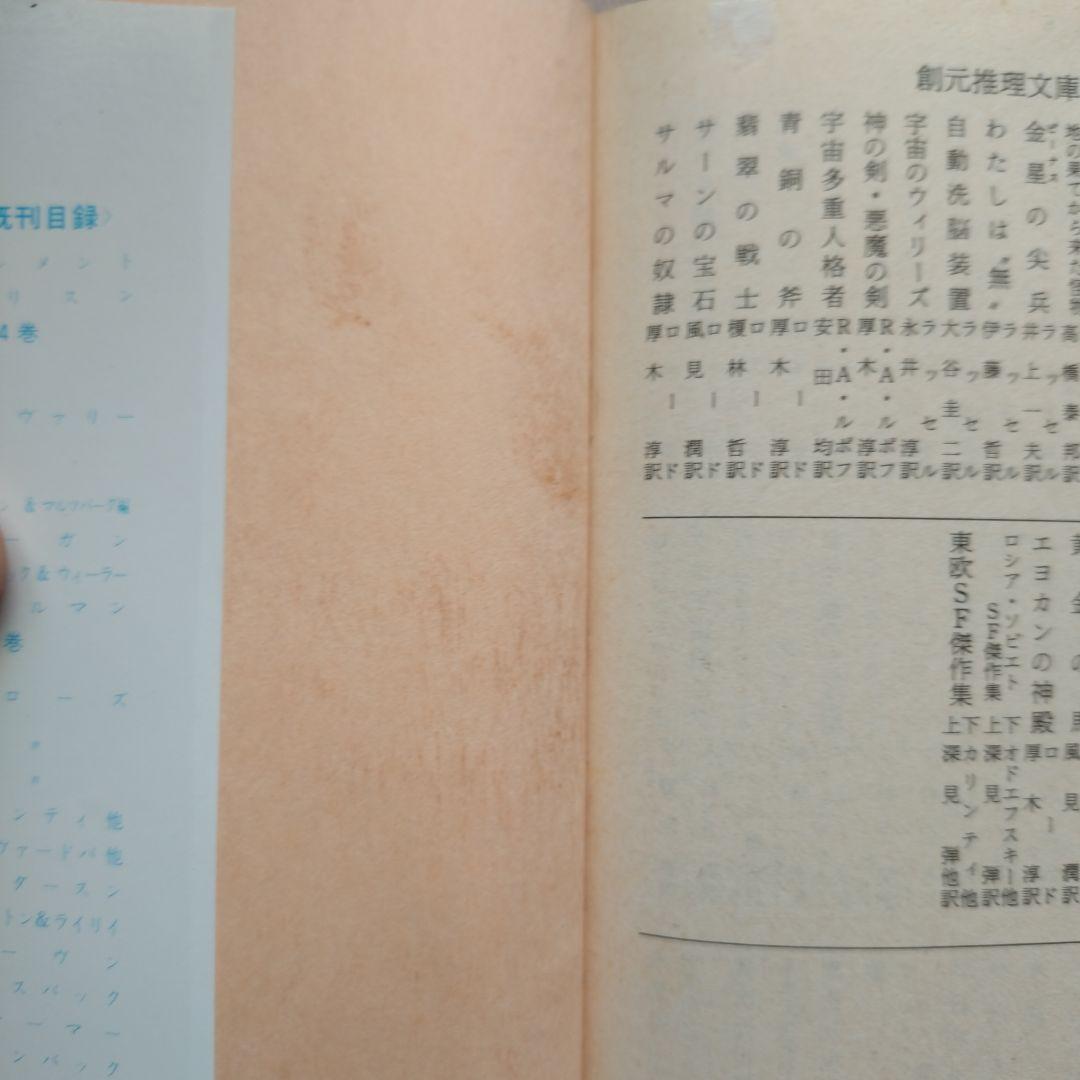 創元推理文庫
金星の尖兵 ラッセル 井上一夫訳
わたしは〝無〟 ラッセル 伊藤哲訳
自動洗脳装置 ラッセル 大谷圭二訳
宇宙のウィリーズ ラッセル 永井淳訳
神の剣・悪魔の剣 R・A・ルポフ 厚木淳訳
宇宙多重人格者 R・A・ルポフ 安田均訳
青銅の斧 ロード 厚木淳訳
翡翠の戦士 ロード 榎林哲訳
サーンの宝石 ロード 風見潤訳
サルマの奴隷 ロード 厚木淳訳
風見潤訳
エヨカンの神殿 ロード 厚木淳訳
ロシア・ソビエトSF傑作集 上下 オドエフスキー他 深見弾訳
東欧SF傑作集 上下 カリンティ他 深見弾他訳
既刊目録〉
メント
リスン
4巻
ヴァリー
ン&マルツバーグ編
ーガン
ク&ウィーラー
ルマン
巻
ローズ
〃
〃
ンティ他
ヴァードバ他
ダースン
トン&ライリイ
ーヴン
スバック
ーマー
ンバック